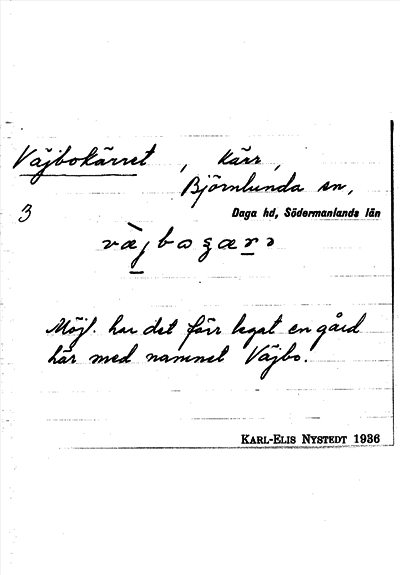 Väjbokärret, kärr,
Björnlunda sn,
3
Daga hd, Södermanlands län
Möjl. har det förr legat en gård
här med namnet Väjbo.
KARL-ELIS NYSTEDT 1936